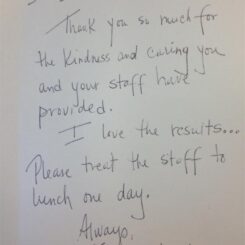 Thank you so much for
the kindness and caring you
and your staff have
provided.
I love the results...
Please treat the staff to
lunch one day.
Always,